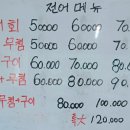 전어 메뉴
회 50000 60000 70.
무침 50000 60.000 70.
구이 60.000 70.000 80.
+무침 60.000 70.000 80.
무침+구이 80.000 100.000
특대 120.000